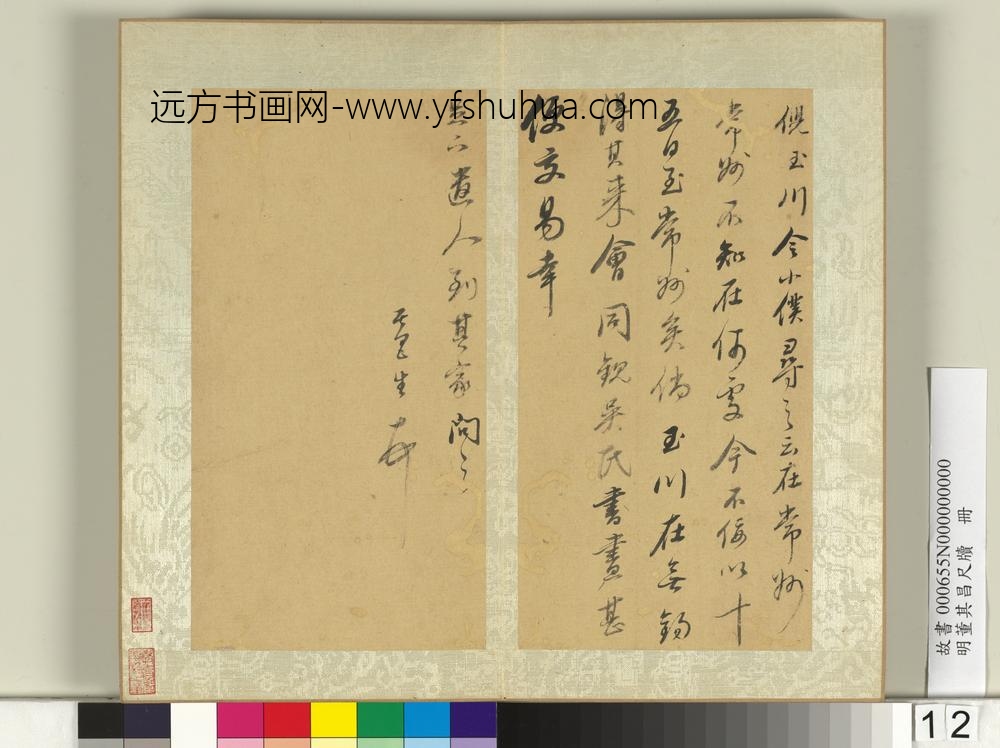 远方书画网-www.yfshuhua.com
倪玉川令小僕尋之云在常州
常州不知在何處今不佞以十
五日至常州矣倘玉川在無錫
得其來會同觀吳氏書畫甚
便交易幸
足下遣人到其家問之
生
故書 000655N000000000
明董其昌尺牘 冊
12